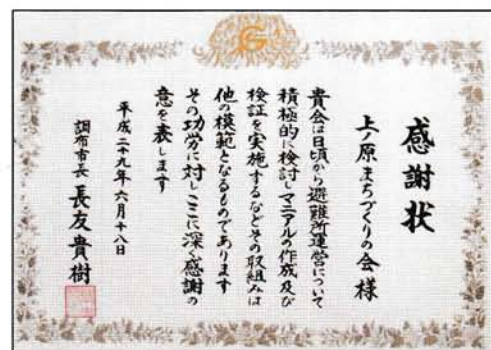 感謝状
上ノ原まちづくりの会様
貴会は日頃から避難所運営について
積極的に検討しマニアルの作成及び
検証を実施するなどその取組みは
他の模範となるものであります
その功労に対しここに深く感謝の
意を表します
平成二十九年六月十八日
調布市長 長友貴樹